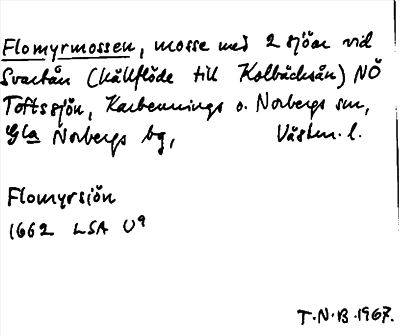 Flomyrmossen, mosse med 2 sjöar vid
Svartån (källflöde till Kolbäcksån) NÖ
Toftssjön, Karbennings o. Norbergs snr,
Gla Norbergs bg, Västm. l.
Flomyrsiön
1662 LSA U9
T.N.B.1967.